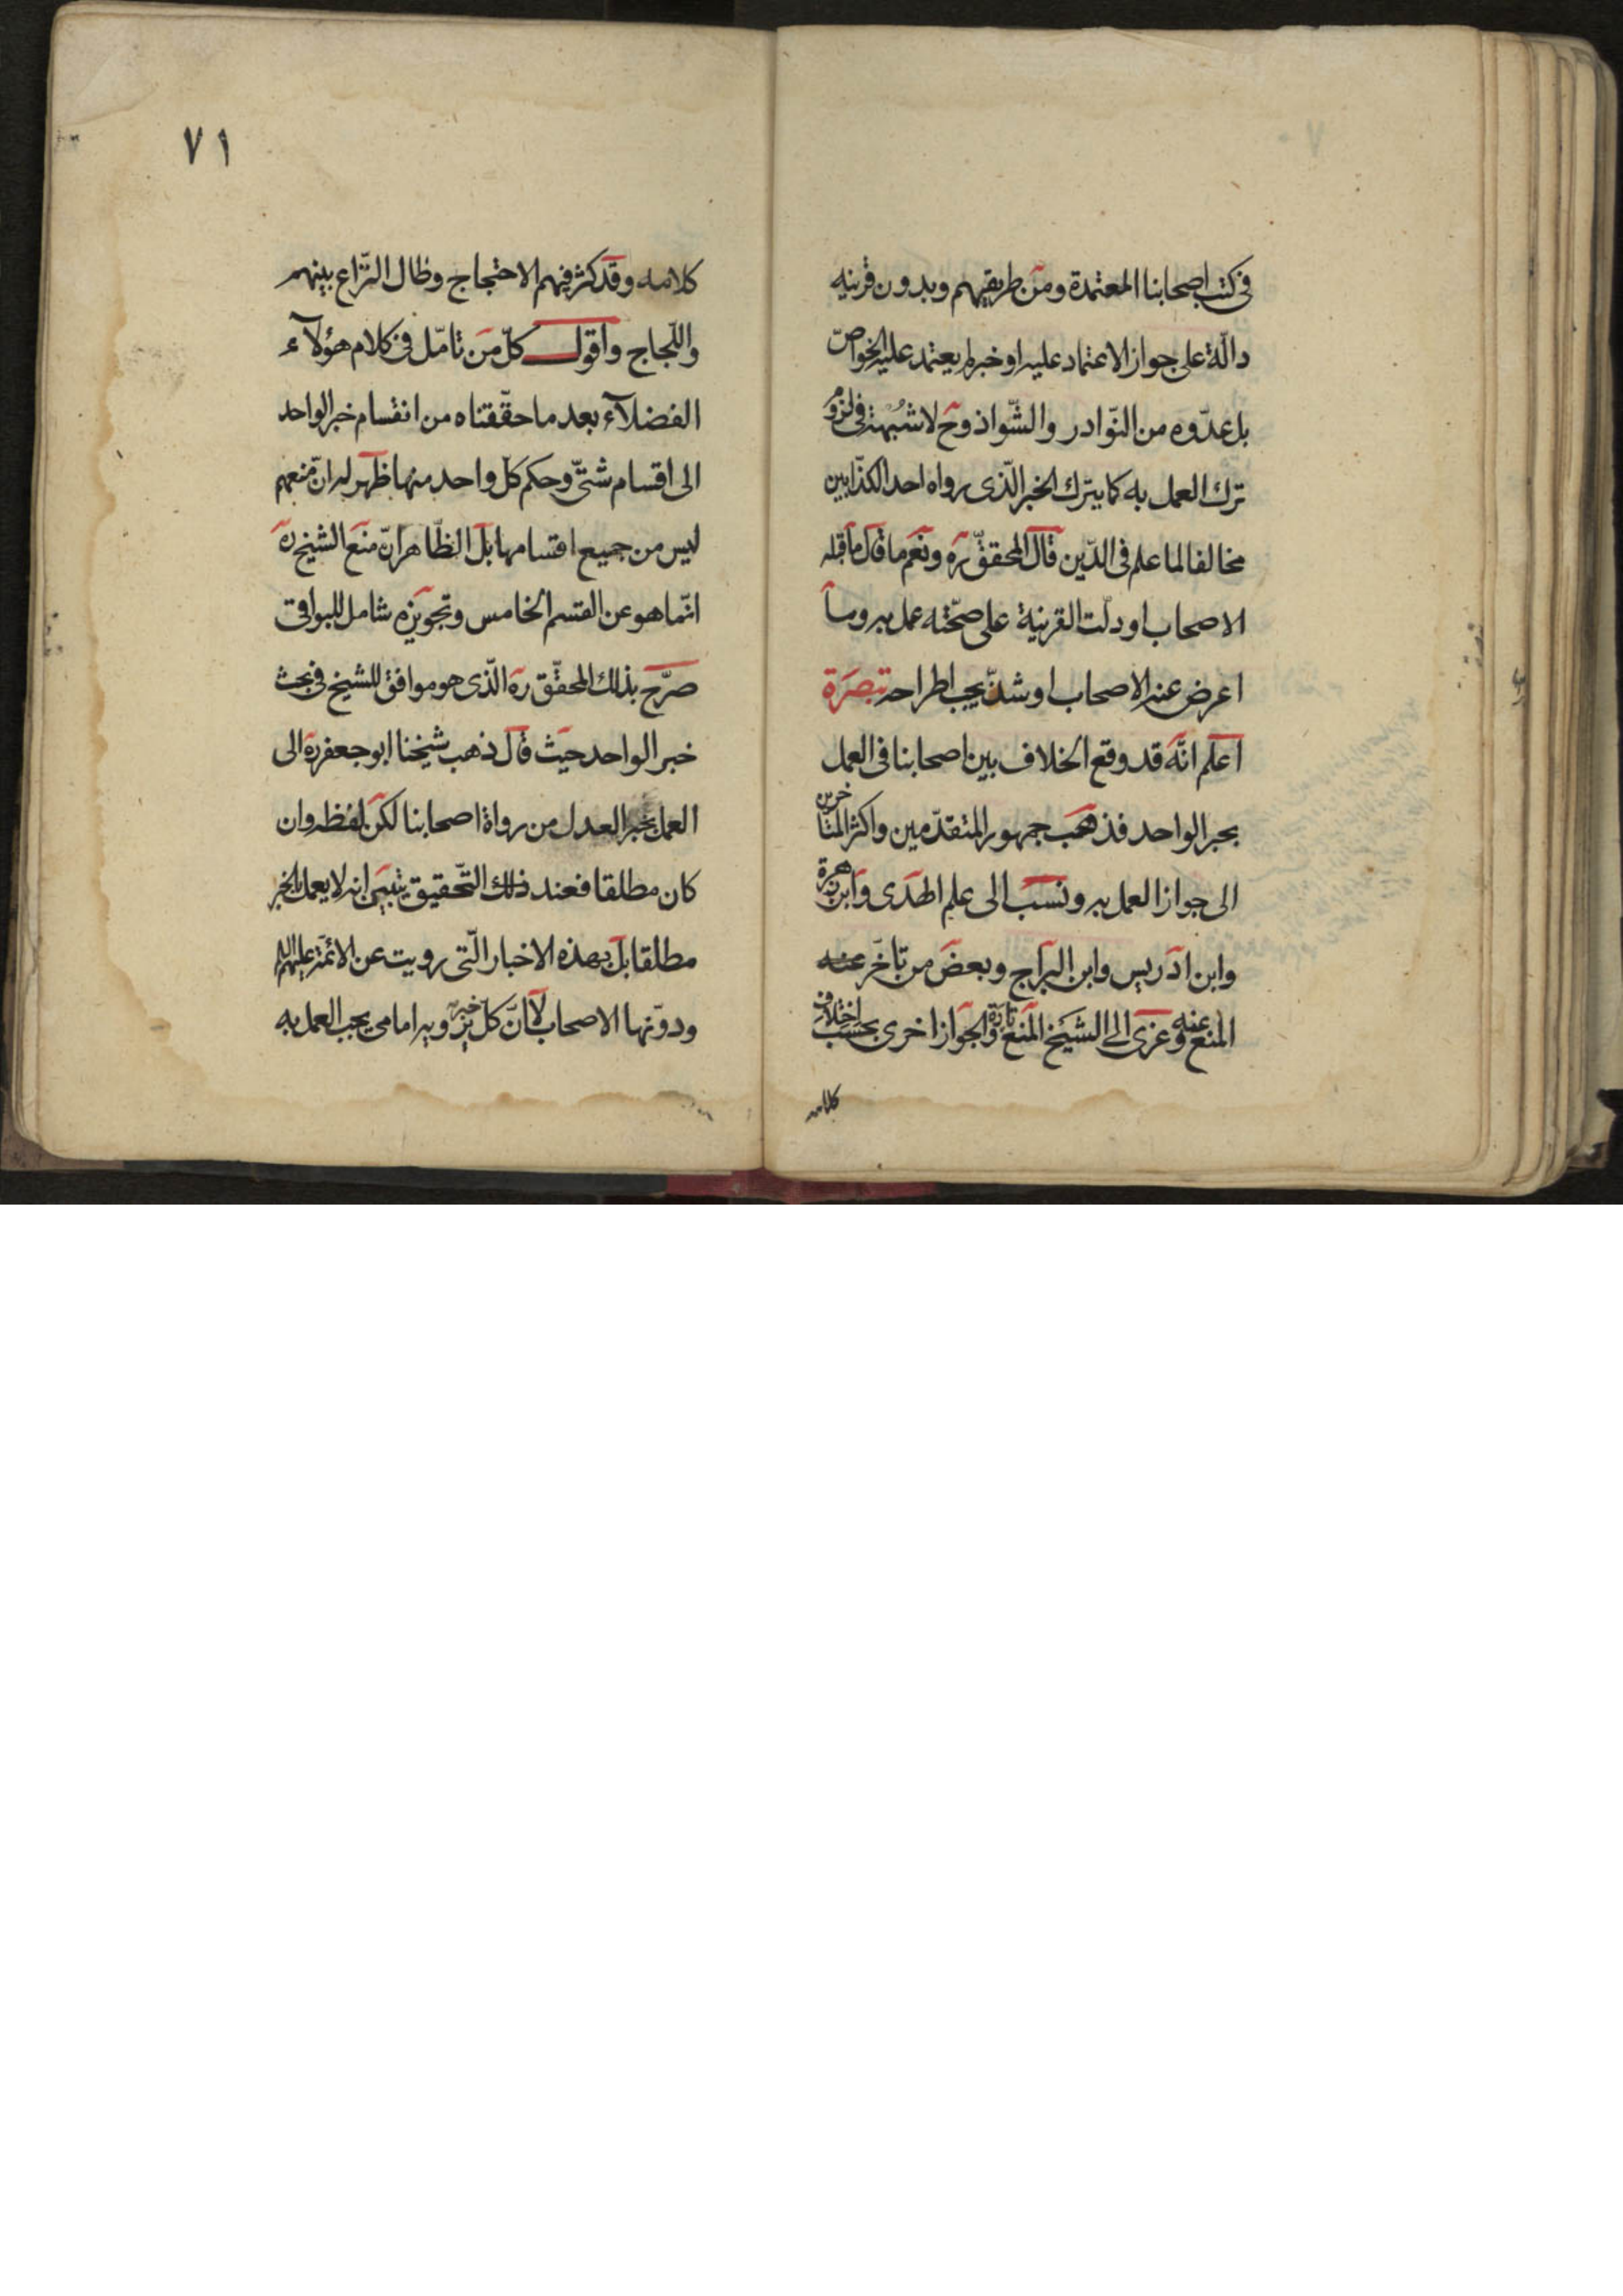 فى كتب اصحابنا المعتمدة ومن طريقهم وبدون قرينه
دالّة على جواز الاعتماد عليه او خبر لم يعتمد عليه الخواصّ
بل عدّوه من النّوادر والشّواذ وح لا شبُهة فى لزوم
ترك العمل به كما يترك الخبر الّذى رواه احد الكذّابين
مخالفا لما علم فى الدّين قال المحقّق ره ونعم ما قال ما قبله
الاصحاب او دلّت القرنية على صحّته عمل به وما
اعرض عنه الاصحاب او شذّ يجب اطراحه تبصرة
اعلم انّه قد وقع الخلاف بين اصحابنا فى العمل
بخبر الواحد فذهب جمهور المتقدّمين واكثر المتاخرين
الى جواز العمل به ونسب الى علم الهدى وابن زهرة
وابن ادريس وابن البرّاج وبعض من تاخّر عنه
المنع عنه وعزى الى الشيخ المنع تارة والجواز اخرى بحسب اختلاف
كلامه
٧١
كلامه وقد كثر فيهم الاحتجاج وطال النّزاع بينهم
واللّجاج واقول كلّ من تامّل فى كلام هؤلآء
الفضلآء بعد ما حقّقناه من انقسام خبر الواحد
الى اقسام شتّى وحكم كل واحد منها ظهر له انّ منعهم
ليس من جميع اقسامها بل الظّاهر انّ منع الشيخ ره
انّما هو عن القسم الخامس وتجويزه شامل للبواقى
صرّح بذلك المحقّق ره الّذى هو موافق للشيخ فى بحث
خبر الواحد حيث قال ذهب شيخنا ابو جعفر ره الى
العمل بخبر العدل من رواة اصحابنا لكن لفظه وان
كان مطلقا فعند ذلك التّحقيق يتبيّن انه لا يعمل بالخبر
مطلقا بل بهذه الاخبار الّتى رويت عن الائمّة عليهم السلام
ودوّنها الاصحاب لا انّ كلّ خبر يرويه امامى يجب العمل به